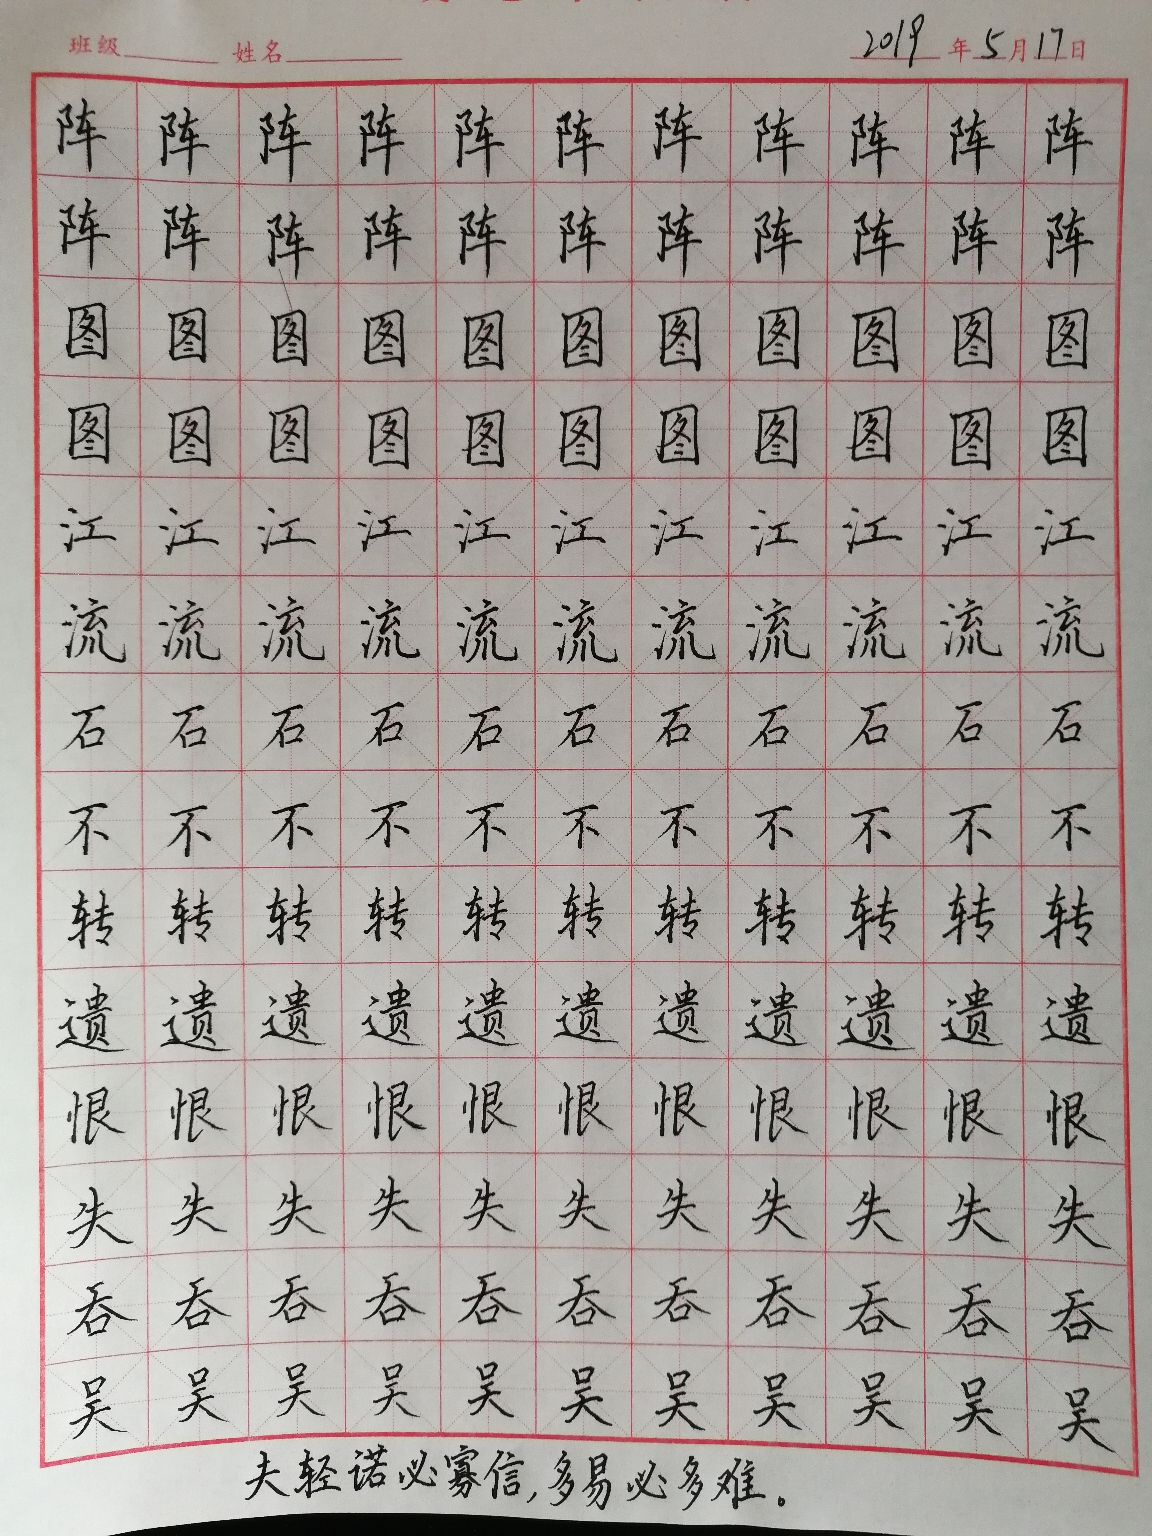 班级 姓名 2019年5月17日
阵阵阵阵阵阵阵阵阵阵阵
阵阵阵阵阵阵阵阵阵阵阵
图图图图图图图图图图图
图图图图图图图图图图图
江江江江江江江江江江江
流流流流流流流流流流流
石石石石石石石石石石石
不不不不不不不不不不不
转转转转转转转转转转转
遗遗遗遗遗遗遗遗遗遗遗
恨恨恨恨恨恨恨恨恨恨恨
失失失失失失失失失失失
吞吞吞吞吞吞吞吞吞吞吞
吴吴吴吴吴吴吴吴吴吴吴
夫轻诺必寡信,多易必多难。